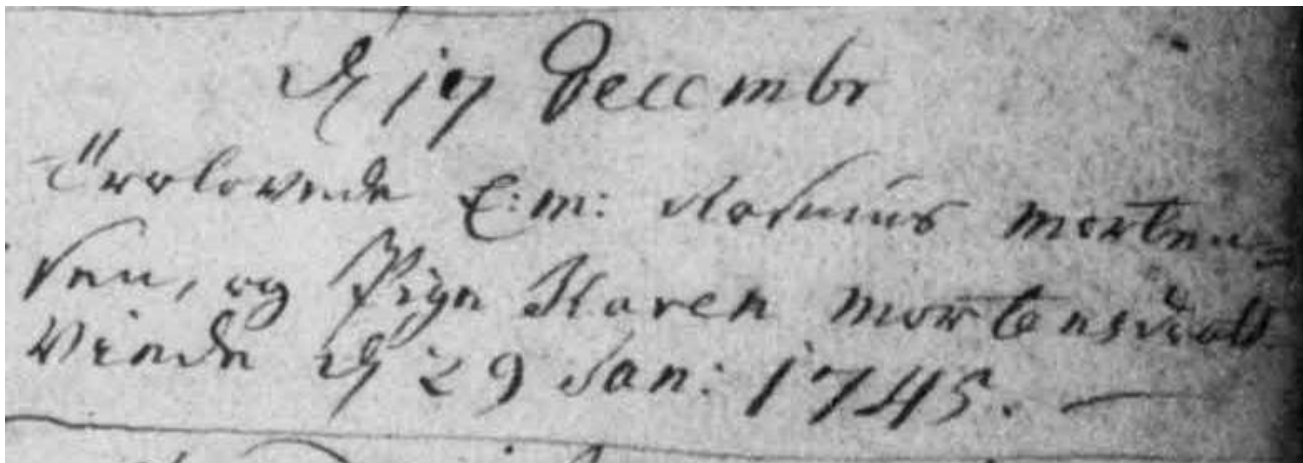 d 17 Decembr
Trolovede E:m: Rasmus Morten=
sen, og Pige Karen Mortensdatt
Viede d 29 Jan: 1745.